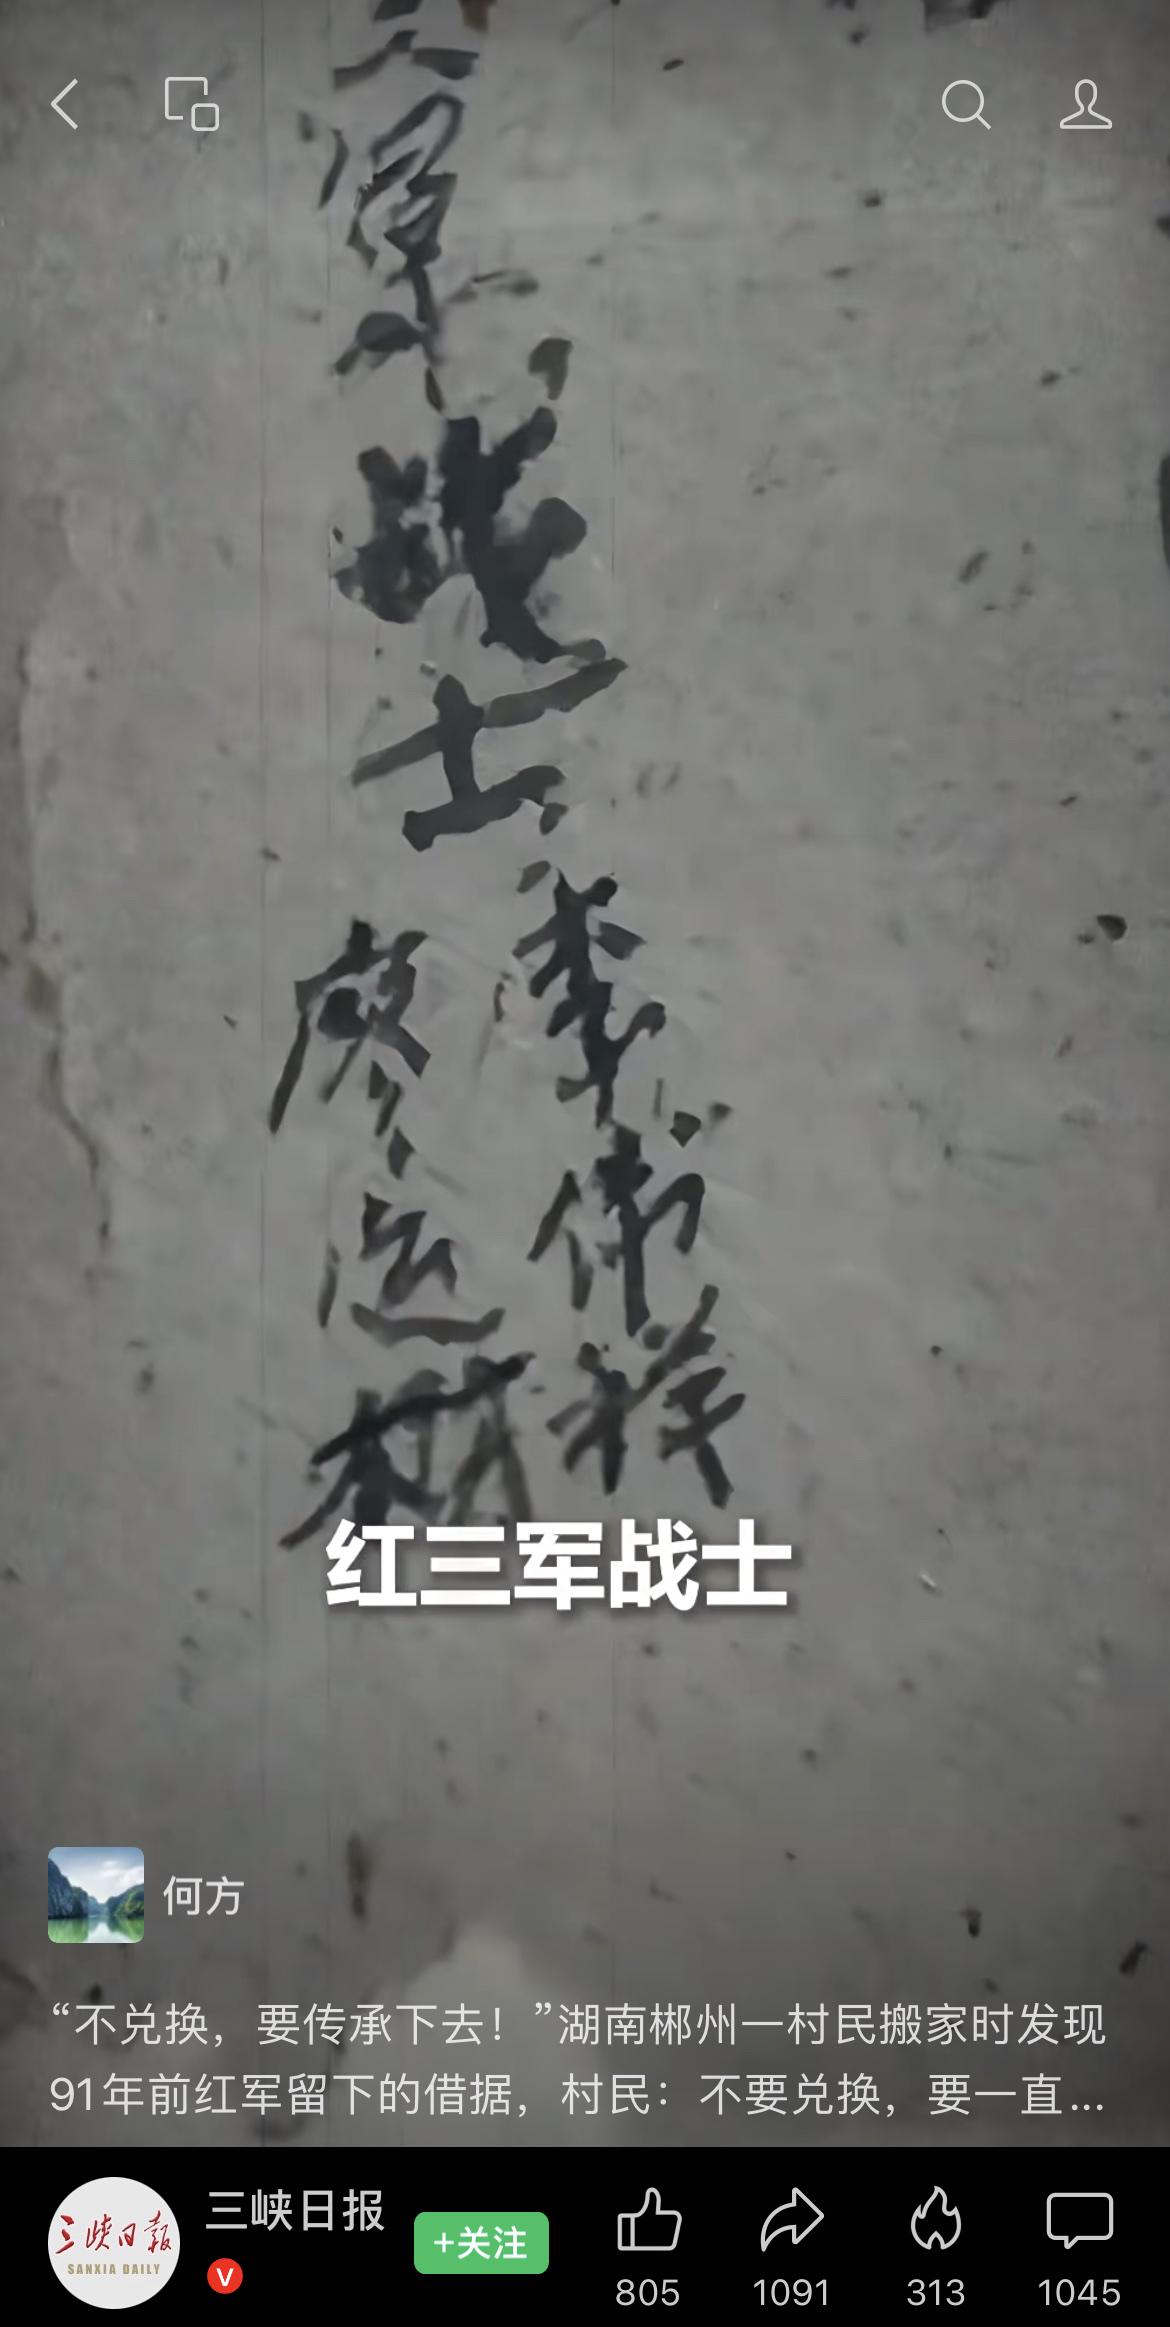 三军战士
李伟祥
廖运
红三军战士
何方
“不兑换，要传承下去！”湖南郴州一村民搬家时发现
91年前红军留下的借据，村民：不要兑换，要一直...
三峡日報
SANXIA DAILY
三峡日报
V
+关注
805
1091
313
1045